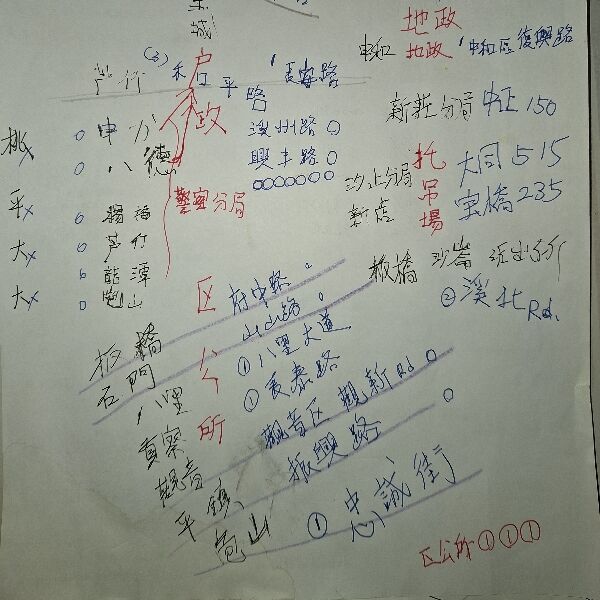 城
地政
中和 地政 中和區復興路
芦竹 和平路 長安路
戶政
桃 中力 溪州路
八德 興丰路
新莊分局 中正 150
托吊場
汐止分局 大同 515
新店 宝橋 235
警察分局
平 楊梅
大 芦竹
龍潭
大 龜山
板橋 沙崙 派出所
② 溪北 Rd.
区公所
板橋 府中路
石門 中山路
八里 ① 八里大道
貢寮 ① 長泰路
觀音 觀音区 觀新 Rd
平鎮 振興路
龟山 ① 忠誠街
区公所 ① ① ①